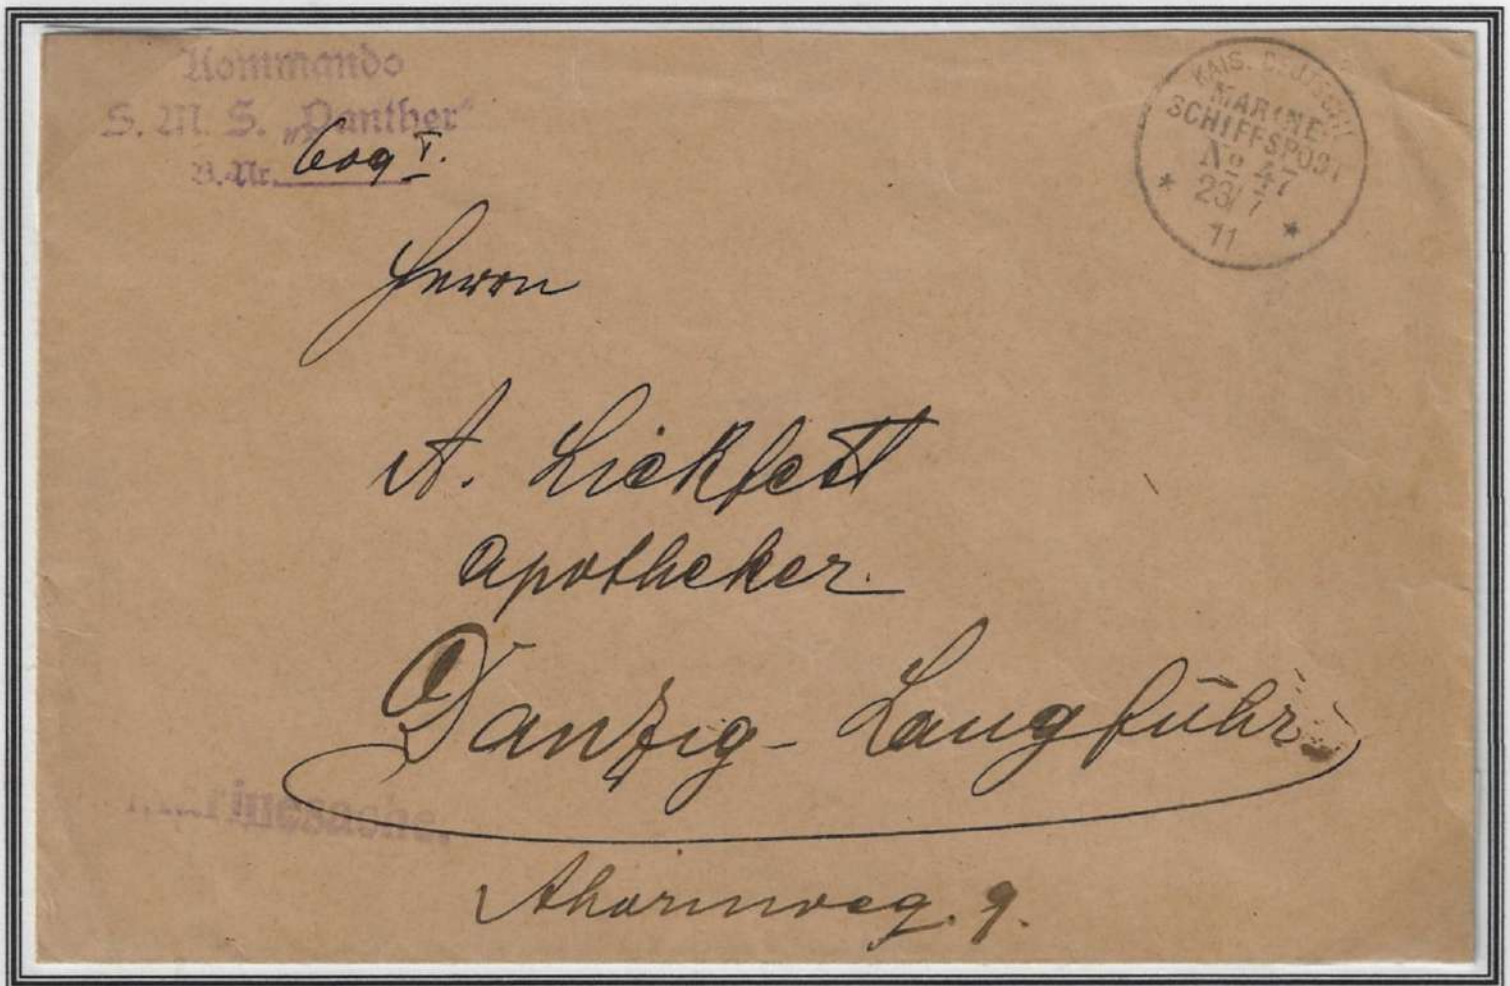 Kommando
S. M. S. „Panther“
B.-Nr. 609 I.
KAIS. DEUTSCHE
MARINE-
SCHIFFSPOST
No 47
23/7
11
Herrn
A. Lickfett
Apotheker.
Danzig-Langfuhr
Marinesache.
Ahornweg. 9.